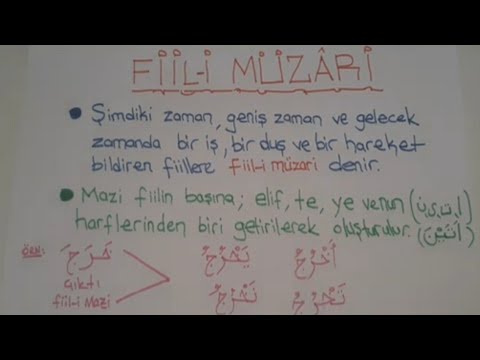 FİİL-İ MÜZÂRİ
• Şimdiki zaman, geniş zaman ve gelecek
zamanda bir iş, bir duş ve bir hareket
bildiren fiillere fiil-i müzari denir.
• Mazi fiilin başına; elif, te, ye venun (أ,ت,ي,ن)
harflerinden biri getirilerek oluşturulur. (أَتَيْنَ)
ÖRN: خَرَجَ يَخْرُجُ أَخْرُجُ
Çıktı
fiil-i Mazi نَخْرُجُ تَخْرُجُ